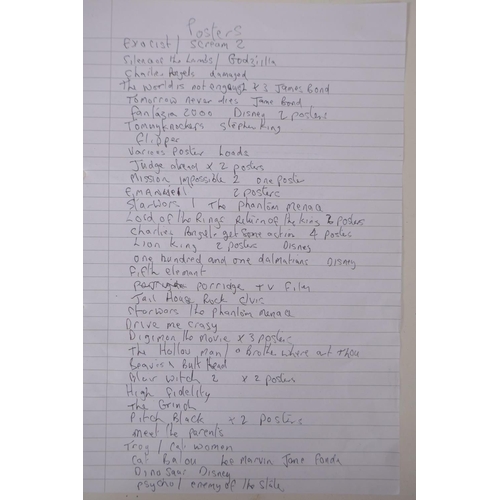 Posters
Exocist / Scream 2
Silence the Lambs / Godzilla
Charlie Angels damaged
The World is not enough x 3 James Bond
Tomorrow never dies Jame Bond
Fantasia 2000 Disney 2 posters
Tommyknockers Stephen King
Flipper
Various Poster Loads
Judge x 2 posters
Mission impossible 2 one poster
2 posters
Star Wars 1 The phantom menace
Lord of the Rings Return of the king 2 posters
Charlies Angels get some action 4 poster
Lion King 2 posters Disney
one hundred and one dalmatians Disney
fifth element
porridge TV Film
Jail House Rock Elvis
Starwars the phantom menace
Drive me crasy
Digimon the movie x 3 posters
The Hollow man / o Brothe where art Thou
Beavis & Butt Head
Blair Witch 2 x 2 posters
High Fidelity
The Grinch
Pitch Black x 2 posters
meet the parents
Trog / Cat women
Cat Balou Lee Marvin Jane Fonda
Dinosaur Disney
psycho / enemy of the state